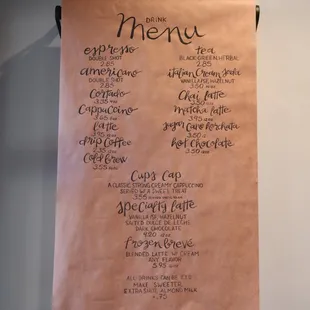 DRINK
Menu
espresso
DOUBLE SHOT
2.85
americano
DOUBLE SHOT
2.85
Cortado
3.35
Cappuccino
3.65
latte
3.95
drip Coffee
Cold brew
3.55
tea
BLACK GREEN HERBAL
2.85
italian Cream Soda
VANILLA OR HAZELNUT
3.50
Chai latte
3.50
Matcha latte
3.95
Sugar Cane horchata
3.50
hot Chocolate
3.50
Cups Cap
A CLASSIC STRONG CREAMY CAPPUCCINO
SERVED W/ A SWEET TREAT
3.55
Specialty latte
VANILLA OR HAZELNUT
SALTED DULCE DE LECHE
DARK CHOCOLATE
4.20
frozen breve
BLENDED LATTE W/ CREAM
ANY FLAVOR
5.95
ALL DRINKS CAN BE ICED
MAKE SWEETER
EXTRA SHOT ALMOND MILK
+.75